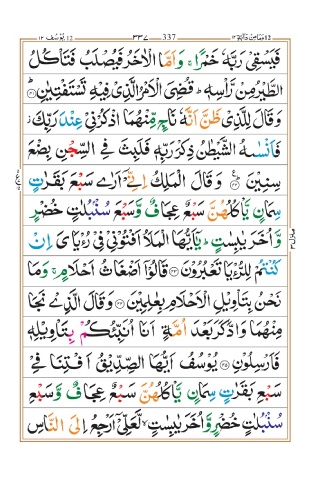 ١٢ يُوْسُف 12 ٣٣٧ 337
فَيَسْقِيْ رَبَّهٗ خَمْرًاۚ وَاَمَّا الْاٰخَرُ فَيُصْلَبُ فَتَاْكُلُ
الطَّيْرُ مِنْ رَّاْسِهٖؕ قُضِيَ الْاَمْرُ الَّذِيْ فِيْهِ تَسْتَفْتِيٰنِؕ ٤١
وَقَالَ لِلَّذِيْ ظَنَّ اَنَّهٗ نَاجٍ مِّنْهُمَا اذْكُرْنِيْ عِنْدَ رَبِّكَؗ
فَاَنْسٰىهُ الشَّيْطٰنُ ذِكْرَ رَبِّهٖ فَلَبِثَ فِي السِّجْنِ بِضْعَ
سِنِيْنَ ٤٢ وَقَالَ الْمَلِكُ اِنِّيْٓ اَرٰى سَبْعَ بَقَرٰتٍ
سِمَانٍ يَّاْكُلُهُنَّ سَبْعٌ عِجَافٌ وَّسَبْعَ سُنْۢبُلٰتٍ خُضْرٍ
وَّاُخَرَ يٰبِسٰتٍؕ يٰٓاَيُّهَا الْمَلَاُ اَفْتُوْنِيْ فِيْ رُءْيَايَ اِنْ
كُنْتُمْ لِلرُّءْيَا تَعْبُرُوْنَ ٤٣ قَالُوْٓا اَضْغَاثُ اَحْلَامٍۚ وَمَا
نَحْنُ بِتَاْوِيْلِ الْاَحْلَامِ بِعٰلِمِيْنَ ٤٤ وَقَالَ الَّذِيْ نَجَا
مِنْهُمَا وَادَّكَرَ بَعْدَ اُمَّةٍ اَنَا اُنَبِّئُكُمْ بِتَاْوِيْلِهٖ
فَاَرْسِلُوْنِ ٤٥ يُوْسُفُ اَيُّهَا الصِّدِّيْقُ اَفْتِنَا فِيْ
سَبْعِ بَقَرٰتٍ سِمَانٍ يَّاْكُلُهُنَّ سَبْعٌ عِجَافٌ وَّسَبْعِ
سُنْۢبُلٰتٍ خُضْرٍ وَّاُخَرَ يٰبِسٰتٍۙ لَّعَلِّيْٓ اَرْجِعُ اِلَى النَّاسِ